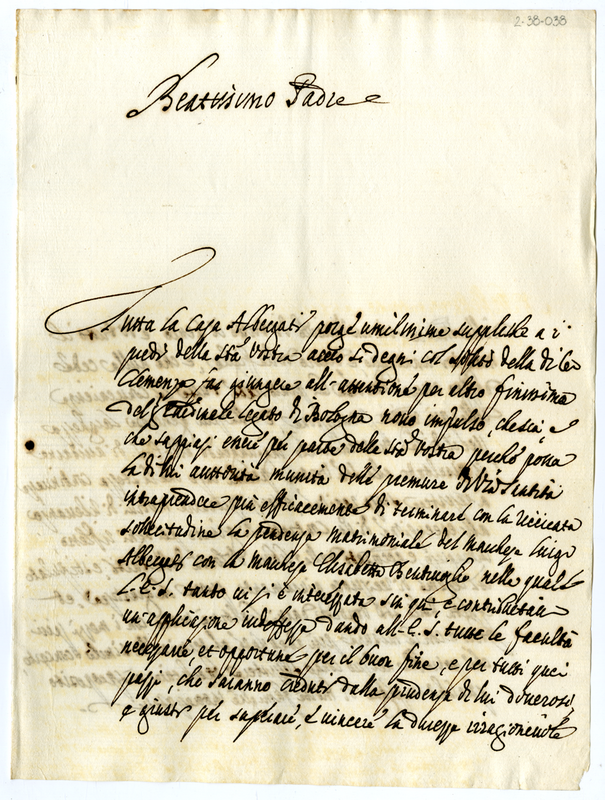 2-38-038
Beatissimo Padre
Tutta la Casa Albergati porge umilissime suppliche a i
piedi della Stà Vostra acciò si degni col della di lei
Clemenza far giungere all'attenzione per altro finissima
del Cardinale Legato di Bologna novo impulso, che sia e
che sappiasi essere per parte della Stà Vostra perché possa
la di lui autorità munita delle premure di Vrà Santità
intraprendere più efficacemente di terminare con la
sollecitudine la pendenza matrimoniale del Marchese Luigi
Albergati con la Marchese Elisabetta Bentivoglio nella quale
L'E.S. tanto vi si è interessata sin qui e contribuita
un'applicazione indefessa dando all'E.S. tutte le facoltà
necessarie, et opportune per il buon fine, e per tutti quei
passi, che saranno creduti dalla prudenza di lui doverosi,
e giusti per superare, e vincere la durezza irragionevole